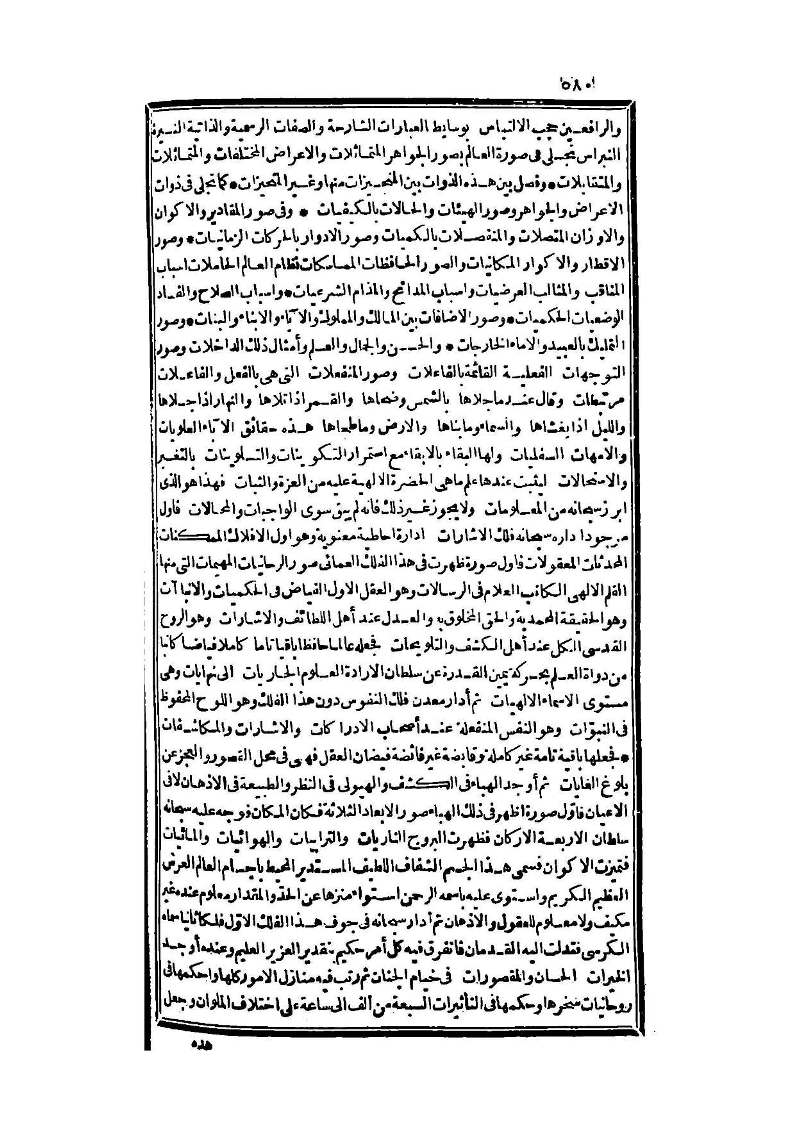 ٥٨٠
والرافعين حجب الالتباس بوسايط العبارات الشارحة والصفات الرسمية والذاتية النيرة
النبراس تجلى فى صورة العالم بصور الجواهر المتماثلات والاعراض المختلفات والمتماثلات
والمتقابلات * وفصل بين هذه الذوات بين المتحيزات منها وغير المتحيزات * كما تجلى فى ذوات
الاعراض والجواهر وصور الهيئات والحالات بالكيفيات * وفى صور المقادير والاكوان
والاوزان المتصلات والمنفصلات بالكميات وصور الادوار بالحركات الزمانيات * وصور
الاقطار والاكوار المكانيات والصور الحافظات الماسكات نظام العالم الحاملات اسباب
المناقب والمثالب العرضيات واسباب المدائح والمذام الشرعيات * واسباب الصلاح والفساد
الوضعيات الحكميات * وصور الاضافات بين المالك والمملوك والآباء والابناء والبنات * وصور
التمليك بالعبيد والاماء الخارجات * والحسن والجمال والعلم وأمثال ذلك الداخلات وصور
التوجهات الفعلية القائمة بالفاعلات وصور المنفعلات التى هى بالفعل والفاعلات
مرتبطات وقال عندما جلاها بالشمس وضحاها والقمر اذا تلاها والنهار اذا جلاها
والليل اذا يغشاها والسماء وما بناها والارض وما طحاها هذه حقائق الآباء العلويات
والامهات السفليات ولها البقاء بالابقاء مع استمرار التكوينات والتلوينات بالتغيير
والاستحالات ليثبت عندها علم ما هى الحضرة الالهية عليه من العزة والثبات فهذا هو الذى
ابرز سبحانه من المعلومات ولا يجوز غير ذلك فانه لم يبق سوى الواجبات والمحالات فاول
موجود اداره سبحانه فلك الاشارات ادارة احاطية معنوية وهو اول الافلاك الممكنات
المحدثات المعقولات فاول صورة ظهرت فى هذا الفلك العمائى صور الروحانيات المهيمات التى منها
القلم الالهى الكاتب العلام فى الرسالات وهو العقل الاول الفياض فى الحكميات والانبا آت
وهو الحقيقة المحمدية والحق المخلوق به والعدل عند أهل اللطائف والاشارات وهو الروح
القدسى الكل عند أهل الكشف والتلويحات فجعله عالما حافظا باقيا تاما كاملا فياضا كاتبا
من دواة العلم بحركة يمين القدرة عن سلطان الارادة العلوم الجاريات الى نهايات وهى
مستوى الاسماء الالهيات ثم أدار معدن فلك النفوس دون هذا الفلك وهو اللوح المحفوظ
فى النبوّات وهو النفس المنفعلة عند أصحاب الادراكات والاشارات والمكاشفات
* فجعلها باقية تامة غير كاملة وقابضة غير فائضة فيضان العقل فهى فى محل القصور والعجز عن
بلوغ الغايات ثم أوجد الهباء فى الكشف والهيولى فى النظر والطبيعة فى الاذهان لا فى
الاعيان فاوّل صورة اظهر فى ذلك الهباء صور الابعاد الثلاثة فكان المكان فوجه عليه سبحانه
سلطان الاربعة الاركان فظهرت البروج الناريات والترابيات والهوائيات والمائيات
فتميزت الاكوان فسمى هذا الجسم الشفاف اللطيف المستدير المحيط باجسام العالم العرش
العظيم الكريم واستوى عليه باسمه الرحمن استواء منزها عن الحد والمقدار معلوم عنده غير
مكيف ولا معلوم للعقول والاذهان ثم أدار سبحانه فى جوف هذا الفلك الاوّل فلكا ثانيا سماه
الكرسى فتدلت اليه القدمان فانفرق فيه كل أمر حكيم بتقدير العزيز العليم وعنده أوجد
الخيرات الحسان والمقصورات فى خيام الجنان ثم رتب فيه منازل الامور كلها واحكمها فى
روحانيات سخرها وحكمها فى التأثيرات السبعة من ألف الى ساعة على اختلاف الملوان وجعل
هذه